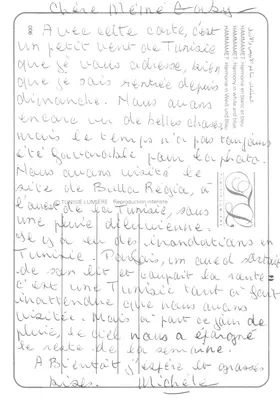 Chère Mème Gaby
Avec cette carte, c'est
un petit vent de Tunisie
que je vous adresse, bien
que je sois rentrée depuis
dimanche. Nous avons
encore vu de belles choses
mais le temps n'a pas toujours
été favorable pour la photo.
Nous avons visité le
site de Bulla Regia, à
l'ouest de la Tunisie, sous
TUNISIE LUMIERE Reproduction interdite
une pluie diluvienne.
Il y a eu des inondations en
Tunisie. Parfois, un oued sortait
de son lit et coupait la route =
c'est une Tunisie tout à fait
inattendue que nous avons
visitée. Mais à part ce jour de
pluie, le ciel nous a épargné
le reste de la semaine.
A Bientôt j'espère et grosses
bises. Michèle
HAMMAMET : Harmonie en blanc et bleu
HAMMAMET : Harmony in white and blue
HAMMAMET : Harmonie in Weiß und Blau